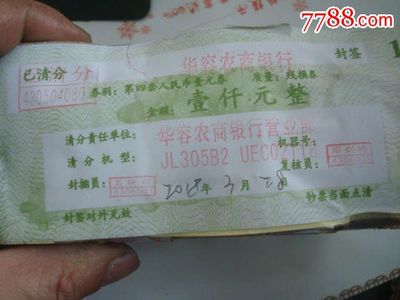 7788.com
已清分 分 华容农商银行 封签 1
430504080
券别：第四套人民币壹元券 质量：残损券
金额：壹仟元整
清分责任单位：华容农商银行营业部
清分机型：JL305B2 UEC02118 机器号：
封捆员： 2018年3月28 复核员：
封签对外无效 钞票当面点清